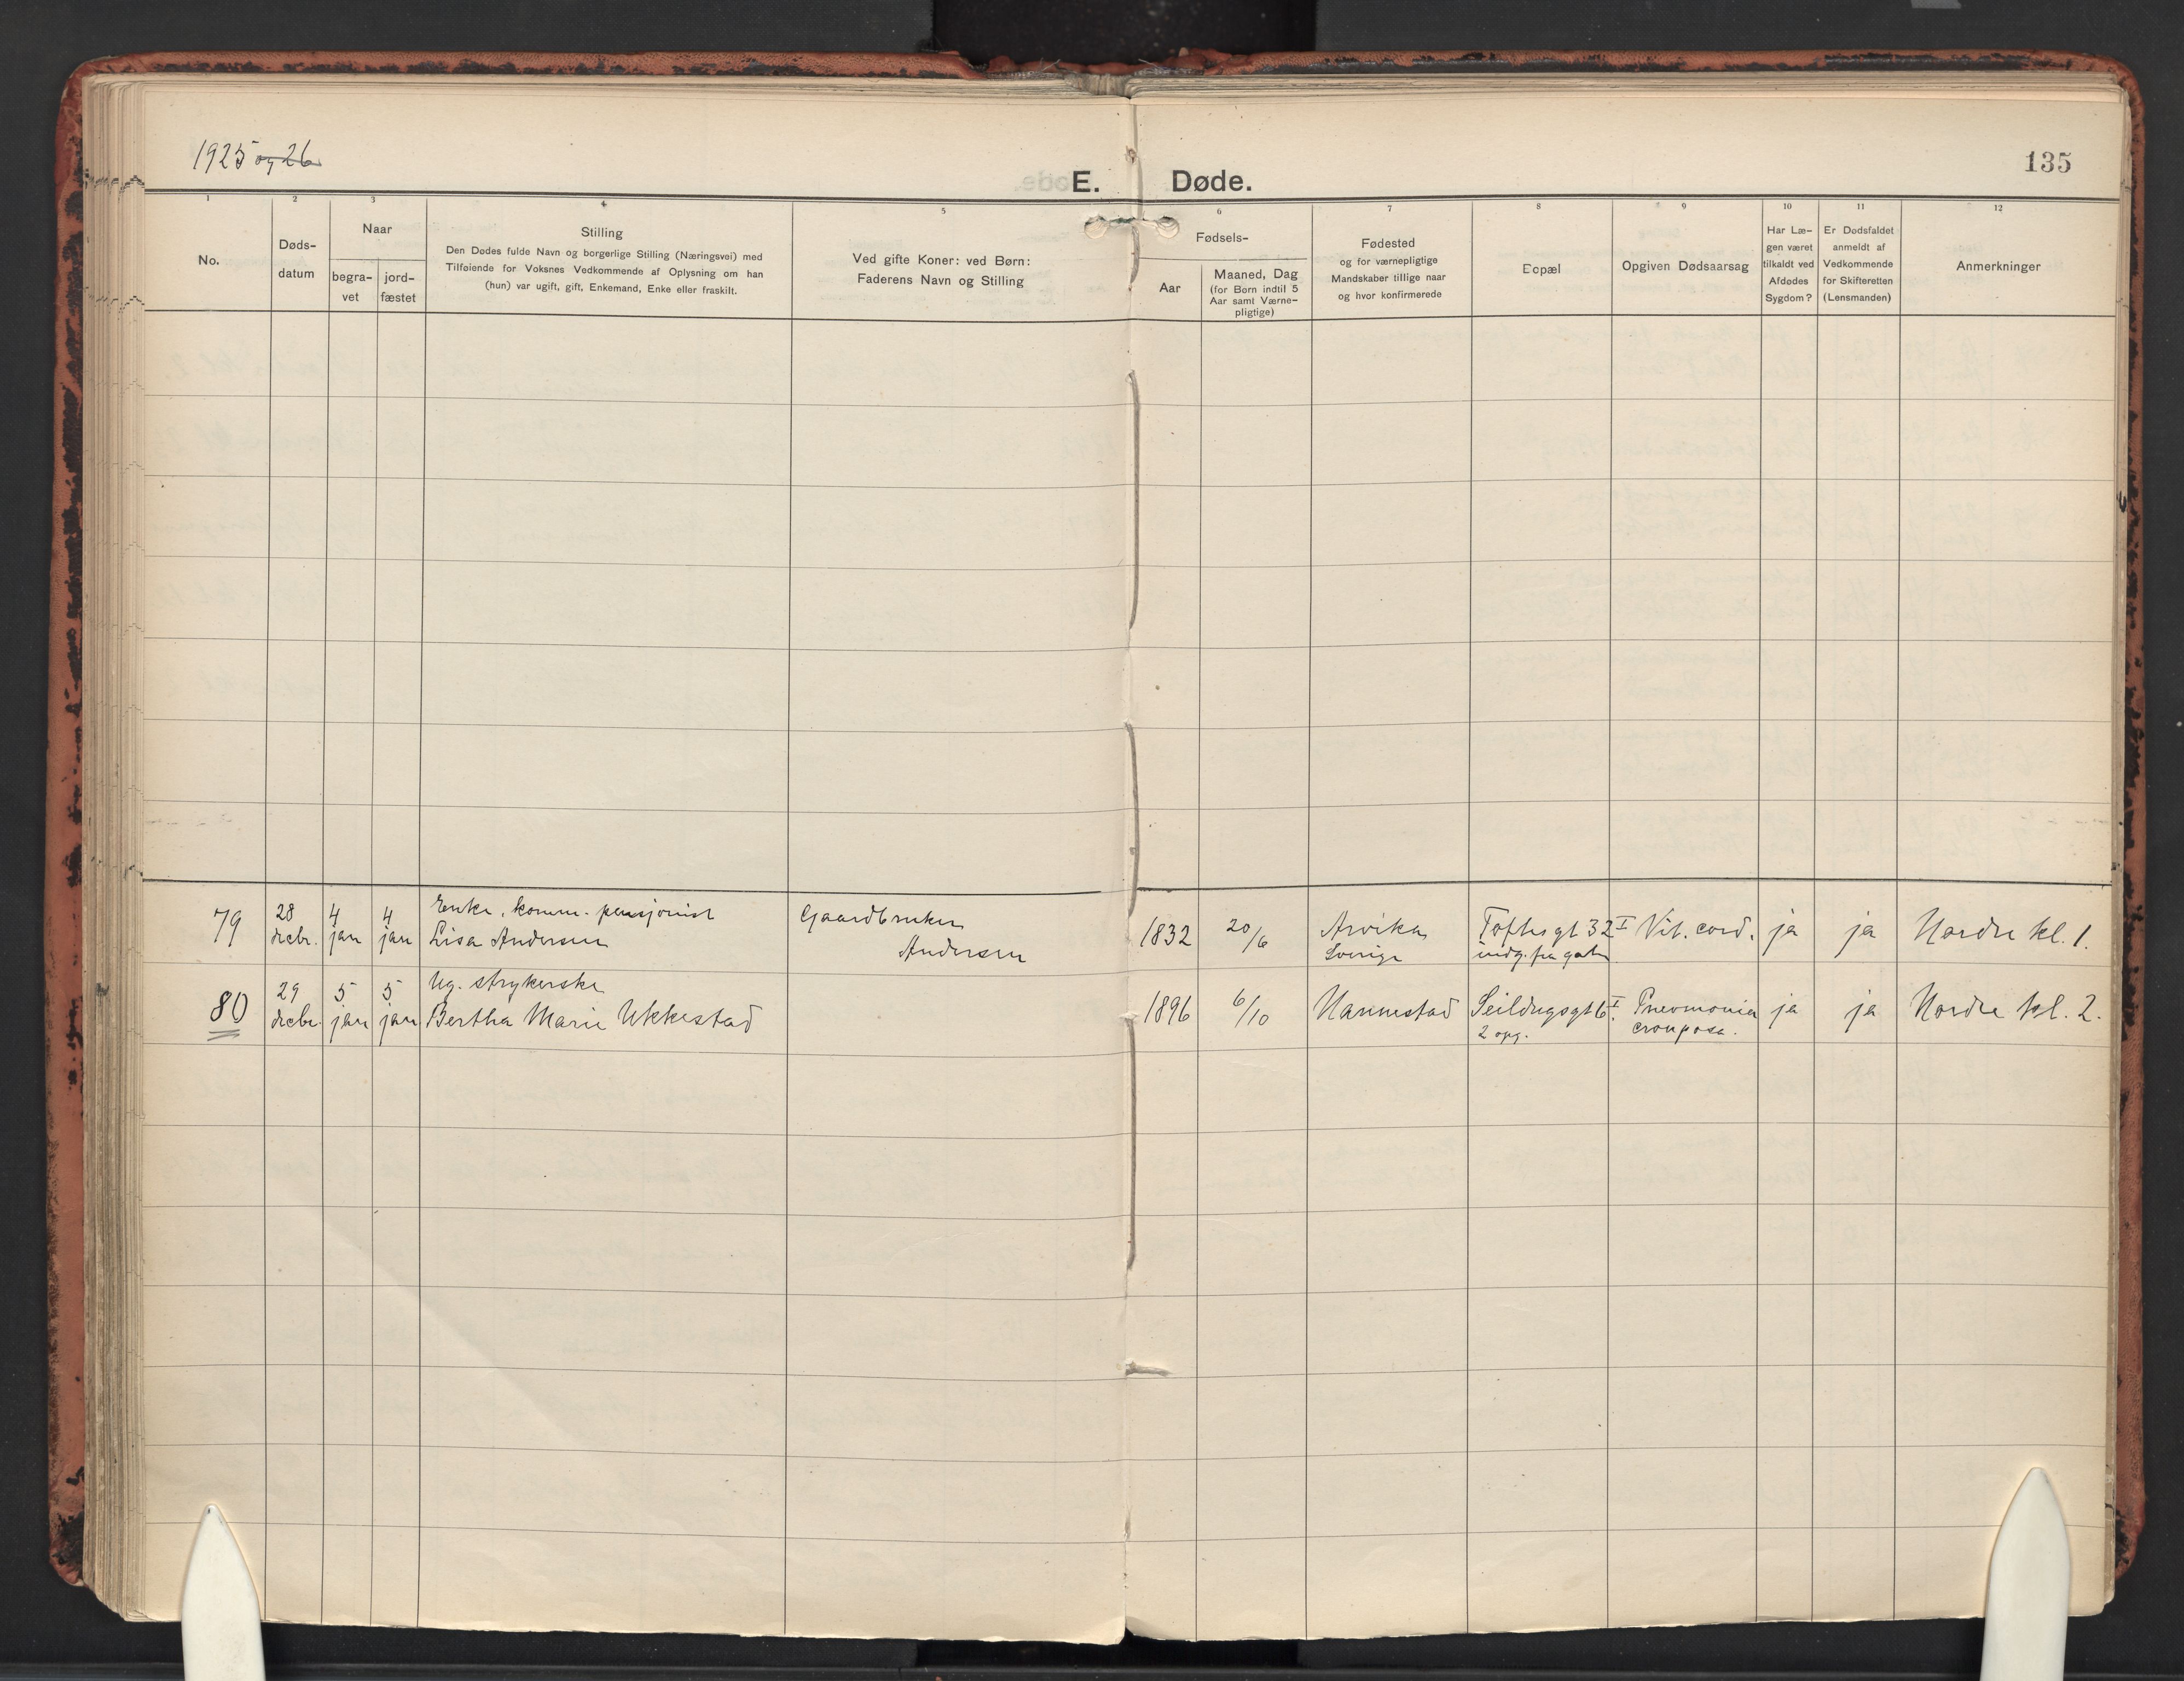 1925 og 26
E. Døde.
135
1 2 3 4 5 6 7 8 9 10 11 12
No.
Døds-
datum
Naar
begra-
vet
jord-
fæstet
Stilling
Den Dødes fulde Navn og borgerlige Stilling (Næringsvei) med
Tilføiende for Voksnes Vedkommende af Oplysning om han
(hun) var ugift, gift, Enkemand, Enke eller fraskilt.
Ved gifte Koner: ved Børn:
Faderens Navn og Stilling
Fødsels-
Aar
Maaned, Dag
(for Børn indtil 5
Aar samt Værne-
pligtige)
Fødested
og for værnepligtige
Mandskaber tillige naar
og hvor konfirmerede
Bopæl
Opgiven Dødsaarsag
Har Læ-
gen været
tilkaldt ved
Afdødes
Sygdom?
Er Dødsfaldet
anmeldt af
Vedkommende
for Skifteretten
(Lensmanden)
Anmerkninger
79
28
decbr.
4
jan
4
jan
Enke, komm. pensjonist
Lisa Andersen
Gaardbruker
Andersen
1832
20/6
Arvika
Sverige
Toftesgt 32 I
indg. fra gaten
Vit. cord.
ja
ja
Nordre kl. 1.
80
29
decbr.
5
jan
5
jan
Ug. strykerske
Bertha Marie Ukkestad
1896
6/10
Nannestad
Seildugsgt 6 I.
2 opg.
Pneumonia
crouposa.
ja
ja
Nordre kl. 2.